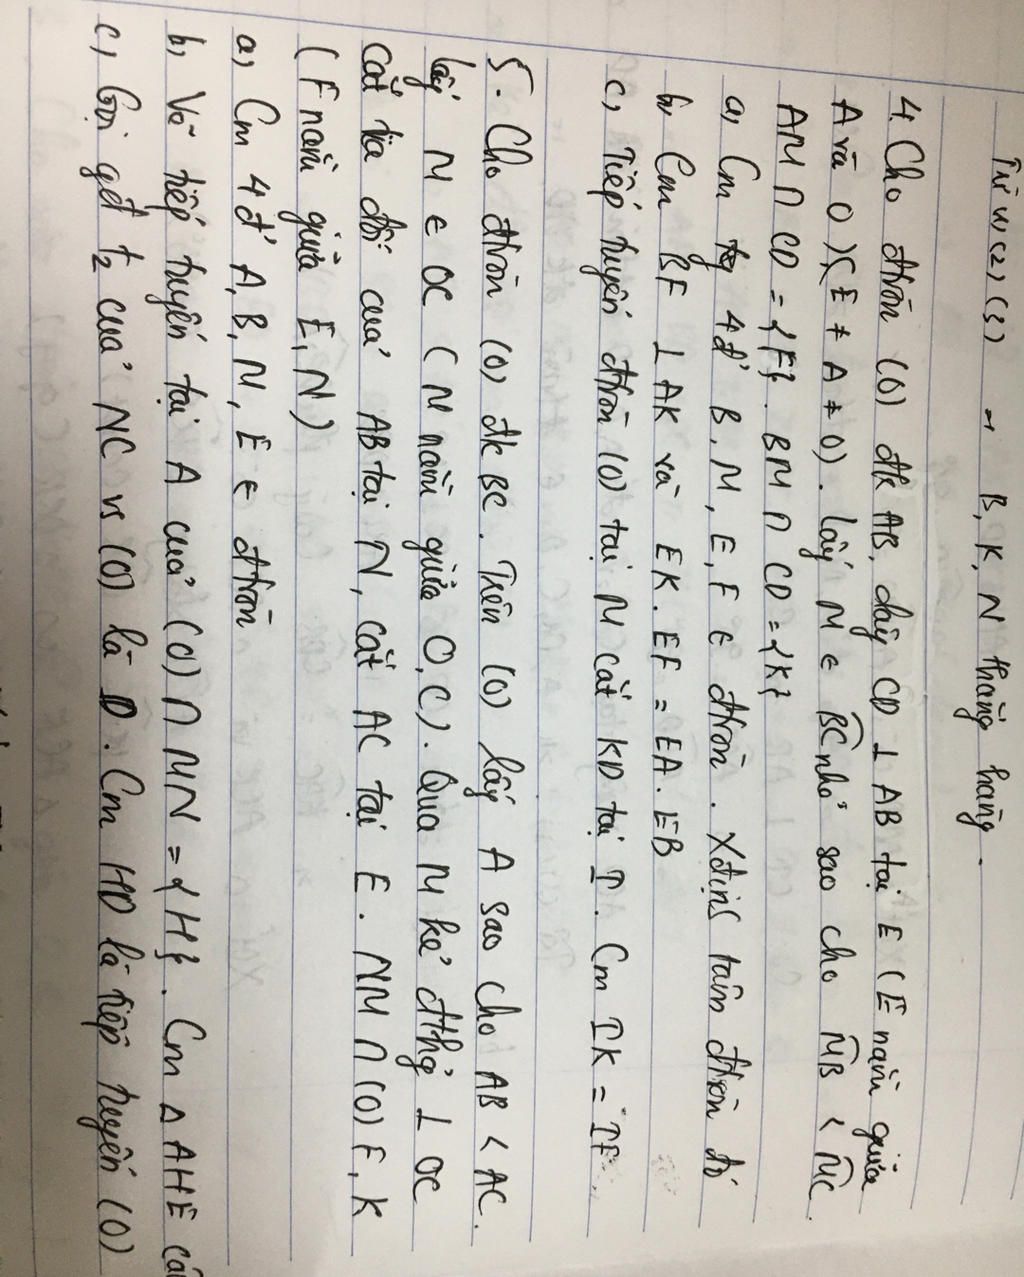 Từ (1) (2) (3) → B, K, N thẳng hàng.
4. Cho đtròn (O) đk AB, dây CD ⊥ AB tại E (E nằm giữa
A và O) (E ≠ A ≠ O). Lấy M ∈ BC nhỏ sao cho MB < MC.
AM ∩ CD = {F}. BM ∩ CD = {K}
a, Cm 4đ' B, M, E, F ∈ đtròn. Xđịnh tâm đtròn đó
b, Cm BF ⊥ AK và EK. EF = EA. EB
c, Tiếp tuyến đtròn (O) tại M cắt KD tại I. Cm IK = IF
5. Cho đtròn (O) đk BC. Trên (O) lấy A sao cho AB < AC.
lấy M ∈ OC (M nằm giữa O, C). Qua M kẻ đthg ⊥ OC
cắt tia đối của AB tại N, cắt AC tại E. NM ∩ (O) F, K
(F nằm giữa E, N)
a, Cm 4đ' A, B, M, E ∈ đtròn
b, Vẽ tiếp tuyến tại A của (O) ∩ MN = {H}. Cm △ AHE cân
c, Gọi gđ t2 của NC vs (O) là D. Cm HD là tiếp tuyến (O)